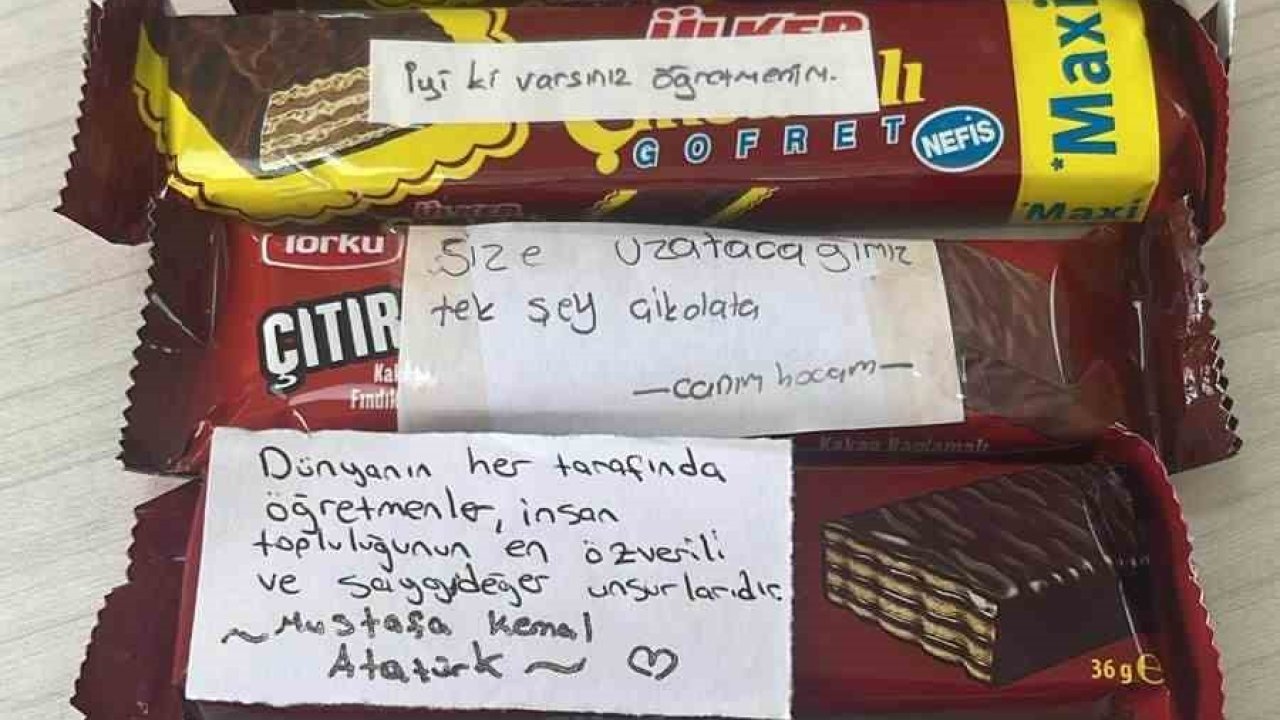 ÜLKER
İyi ki varsınız öğretmenim.
GOFRET
NEFİS
*Maxi
Maxi
ÜLKER
Torku
ÇITIR
Size uzatacağımız
tek şey çikolata
—canım hocam—
Kakao Kaplamalı
Dünyanın her tarafında
öğretmenler, insan
topluluğunun en özverili
ve saygıdeğer unsurlarıdır.
~Mustafa Kemal
Atatürk~ ♡
36 g e